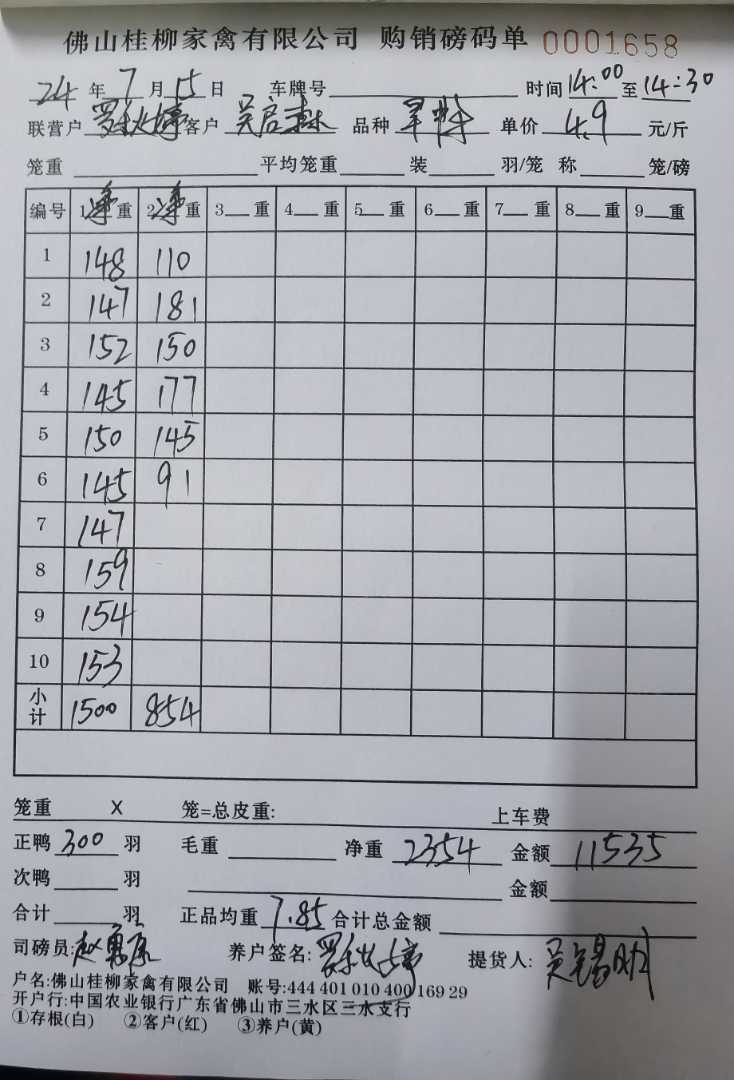 佛山桂柳家禽有限公司 购销磅码单 0001658
24 年 7 月 15 日 车牌号 时间 14:00 至 14:30
联营户 罗秋婷 客户 吴启森 品种 单价 4.9 元/斤
笼重 平均笼重 装 羽/笼 称 笼/磅
编号 1净重 2净重 3 重 4 重 5 重 6 重 7 重 8 重 9 重
1 148 110
2 147 181
3 152 150
4 145 177
5 150 145
6 145 91
7 147
8 159
9 154
10 153
小计 1500 854
笼重 X 笼=总皮重: 上车费
正鸭 300 羽 毛重 净重 2354 金额 11535
次鸭 羽 金额
合计 羽 正品均重 7.85 合计总金额
司磅员: 养户签名: 罗秋婷 提货人: 吴锡明
户名:佛山桂柳家禽有限公司 账号:444 401 010 400 169 29
开户行:中国农业银行广东省佛山市三水区三水支行
①存根(白) ②客户(红) ③养户(黄)